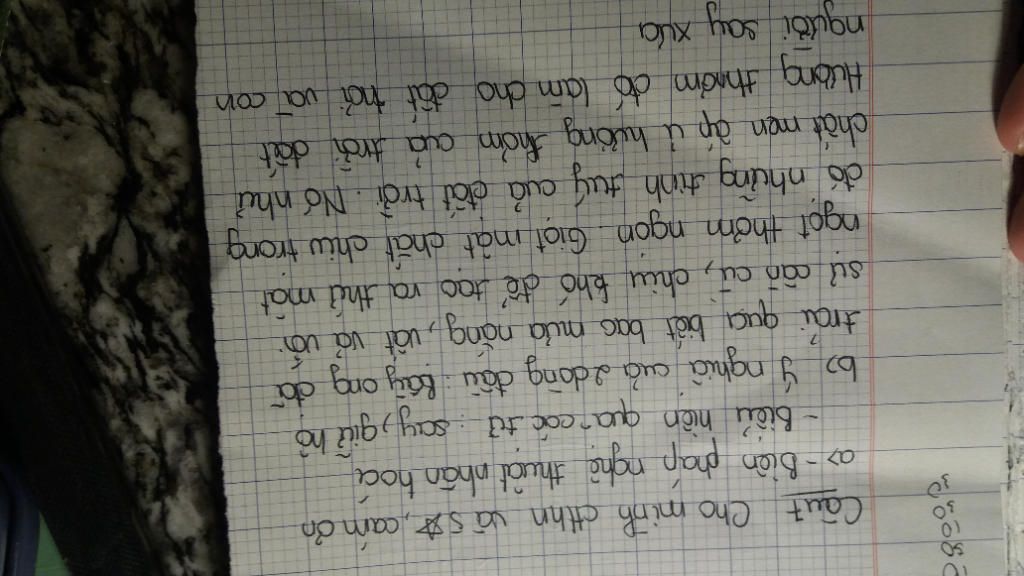 Câu1 Cho mình ctlhn và 5☆, cám ơn
a> - Biện pháp nghệ thuật nhân hoá
- Biểu hiện qua các từ : say, giữ hộ
b> Ý nghĩa của 2 dòng đầu : Bầy ong đã
trải qua biết bao mưa nắng, vất vả với
sự cần cù, chịu khó để tạo ra thứ mật
ngọt thơm ngon. Giọt mật chắt chiu trong
đó những tinh tuý của đất trời. Nó như
chất men ấp ủ hương thơm của trời đất
Hương thơm đó làm cho đất trời và con
người say xưa